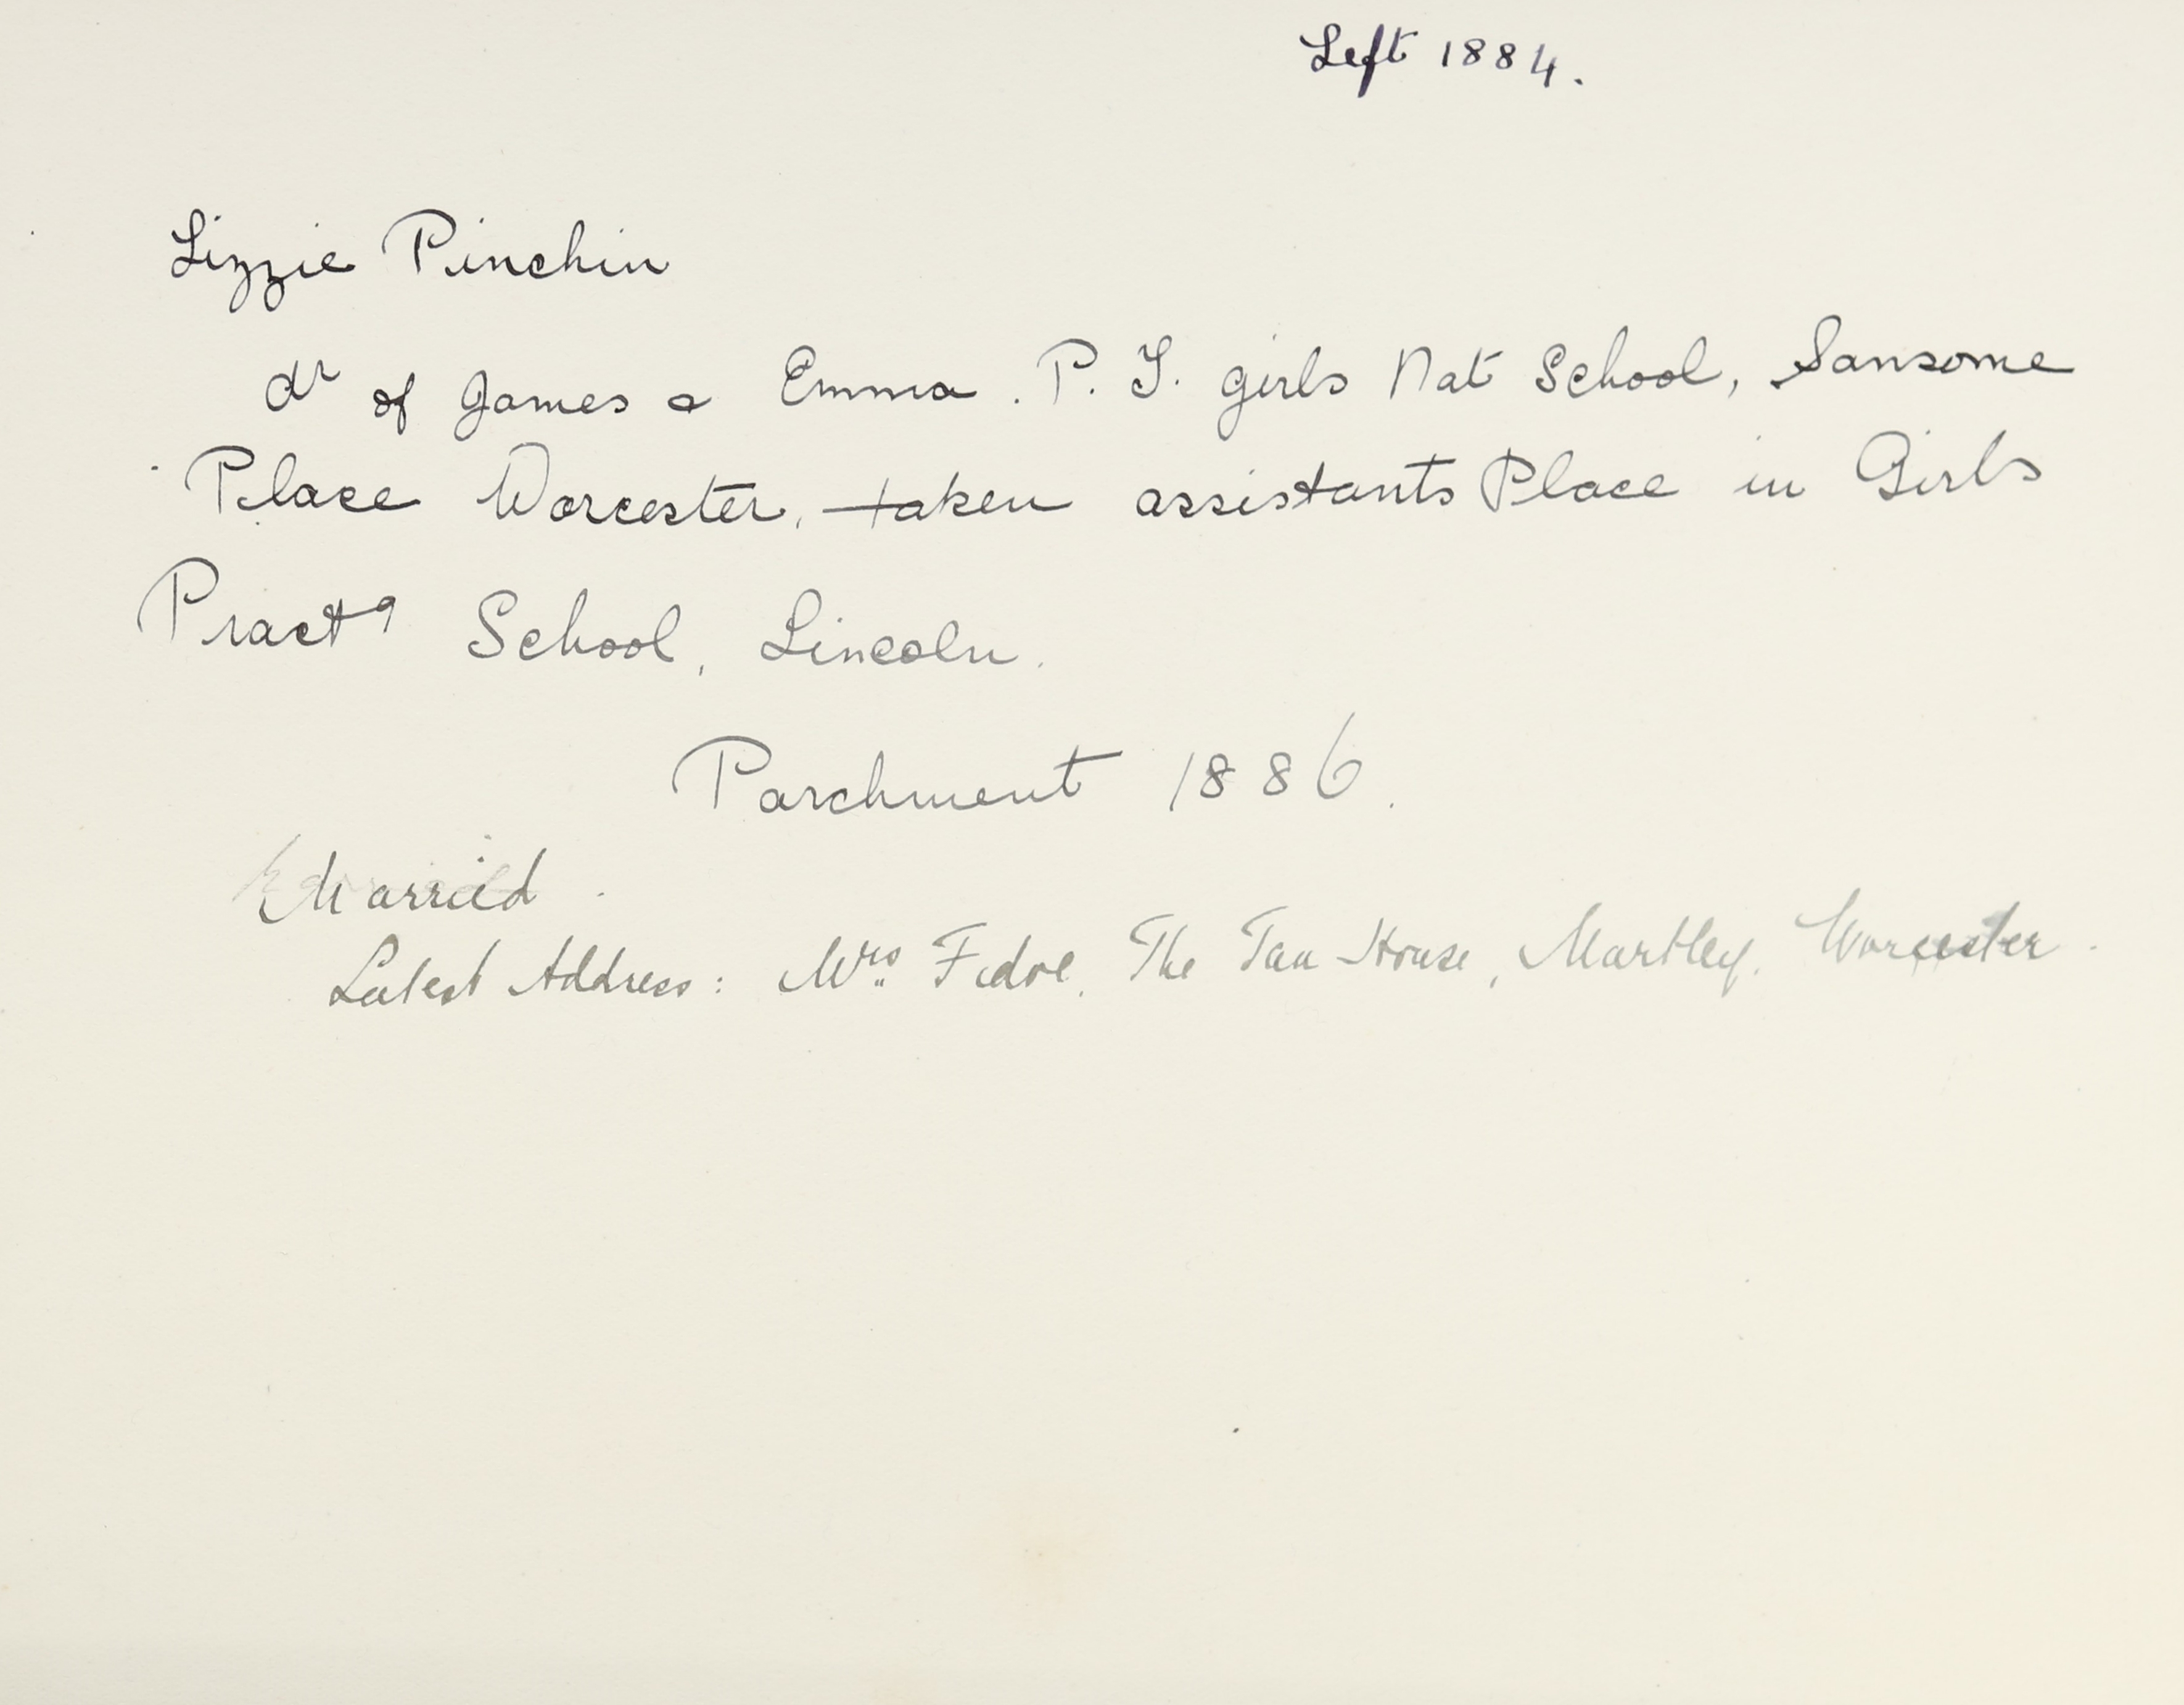 Left 1884.
Lizzie Pinchin
dr of James & Emma. P. T. girls Nat School, Sansome
Place Worcester, taken assistants Place in Girls
Practg School, Lincoln.
Parchment 1886.
Married.
Latest Address: Mrs Fidoe. The Tan House, Martley. Worcester.